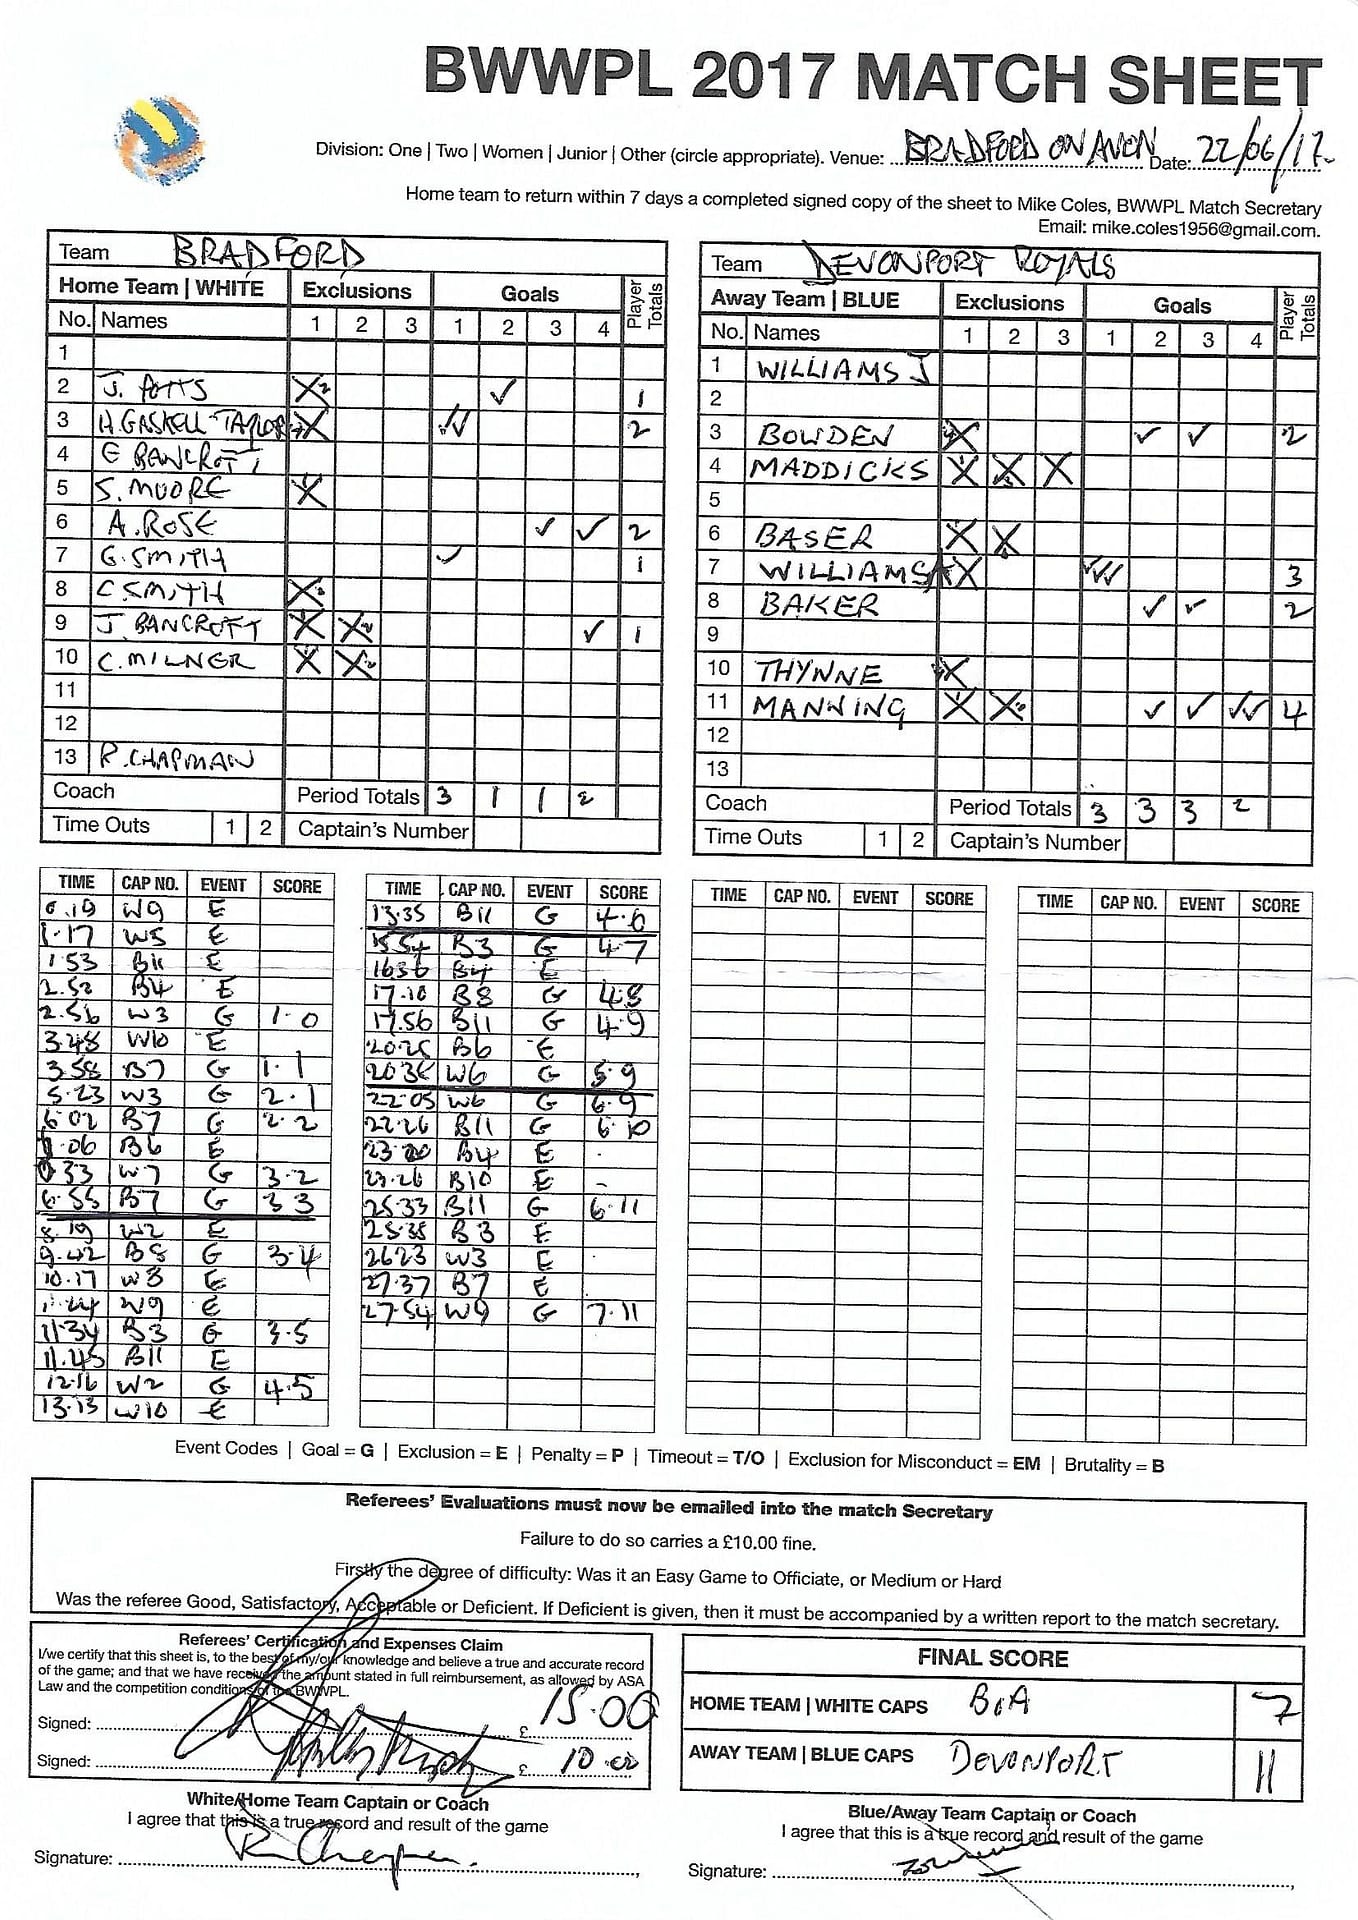 BWWPL 2017 MATCH SHEET
Division: One | Two | Women | Junior | Other (circle appropriate). Venue: BRADFORD ON AVON Date: 22/06/17
Home team to return within 7 days a completed signed copy of the sheet to Mike Coles, BWWPL Match Secretary
Email: mike.coles1956@gmail.com.
Team BRADFORD
Home Team | WHITE Exclusions Goals Player Totals
No. Names 1 2 3 1 2 3 4
1
2 J. POTTS X2 ✓ 1
3 H GASKELL-TAYLOR X ✓✓ 2
4 E BANCROFT
5 S. MOORE X
6 A. ROSE ✓ ✓ 2
7 G. SMITH ✓ 1
8 C SMITH X
9 J. BANCROFT X X ✓ 1
10 C. MILNER X X
11
12
13 R. CHAPMAN
Coach Period Totals 3 1 1 2
Time Outs 1 2 Captain's Number
Team DEVONPORT ROYALS
Away Team | BLUE Exclusions Goals Player Totals
No. Names 1 2 3 1 2 3 4
1 WILLIAMS J
2
3 BOWDEN X ✓ ✓ 2
4 MADDICKS X X X
5
6 BASER X X
7 WILLIAMS X ✓✓✓ 3
8 BAKER ✓ ✓ 2
9
10 THYNNE X
11 MANNING X X ✓ ✓ ✓✓ 4
12
13
Coach Period Totals 3 3 3 2
Time Outs 1 2 Captain's Number
TIME CAP NO. EVENT SCORE
0.19 W9 E
1.17 W5 E
1.53 B11 E
2.52 B4 E
2.56 W3 G 1.0
3.48 W10 E
3.58 B7 G 1.1
5.23 W3 G 2.1
6.02 B7 G 2.2
06 B6 E
33 W7 G 3.2
6.55 B7 G 3 3
8.19 W2 E
9.42 B8 G 3.4
10.17 W8 E
W9 E
11.34 B3 G 3.5
11.45 B11 E
12.16 W2 G 4.5
13.13 W10 E
TIME CAP NO. EVENT SCORE
13.35 B11 G 4.6
15.54 B3 G 4.7
1636 B4 E
17.10 B8 G 4.8
17.56 B11 G 4.9
20.25 B6 E
W6 G 5.9
22.05 W6 G 6.9
22.26 B11 G 6.10
23.00 B4 E
23.26 B10 E -
25.33 B11 G 6.11
25.38 B3 E
2623 W3 E
27.37 B7 E
27.54 W9 G 7.11
TIME CAP NO. EVENT SCORE
TIME CAP NO. EVENT SCORE
Event Codes | Goal = G | Exclusion = E | Penalty = P | Timeout = T/O | Exclusion for Misconduct = EM | Brutality = B
Referees' Evaluations must now be emailed into the match Secretary
Failure to do so carries a £10.00 fine.
Firstly the degree of difficulty: Was it an Easy Game to Officiate, or Medium or Hard
Was the referee Good, Satisfactory, Acceptable or Deficient. If Deficient is given, then it must be accompanied by a written report to the match secretary.
Referees' Certification and Expenses Claim
I/we certify that this sheet is, to the best of my/our knowledge and believe a true and accurate record
of the game; and that we have received the amount stated in full reimbursement, as allowed by ASA
Law and the competition conditions of the BWWPL.
Signed: £ 15.00
Signed: £ 10.00
FINAL SCORE
HOME TEAM | WHITE CAPS BOA 7
AWAY TEAM | BLUE CAPS DEVONPORT 11
White/Home Team Captain or Coach
I agree that this is a true record and result of the game
Signature: R Chapman
Blue/Away Team Captain or Coach
I agree that this is a true record and result of the game
Signature: